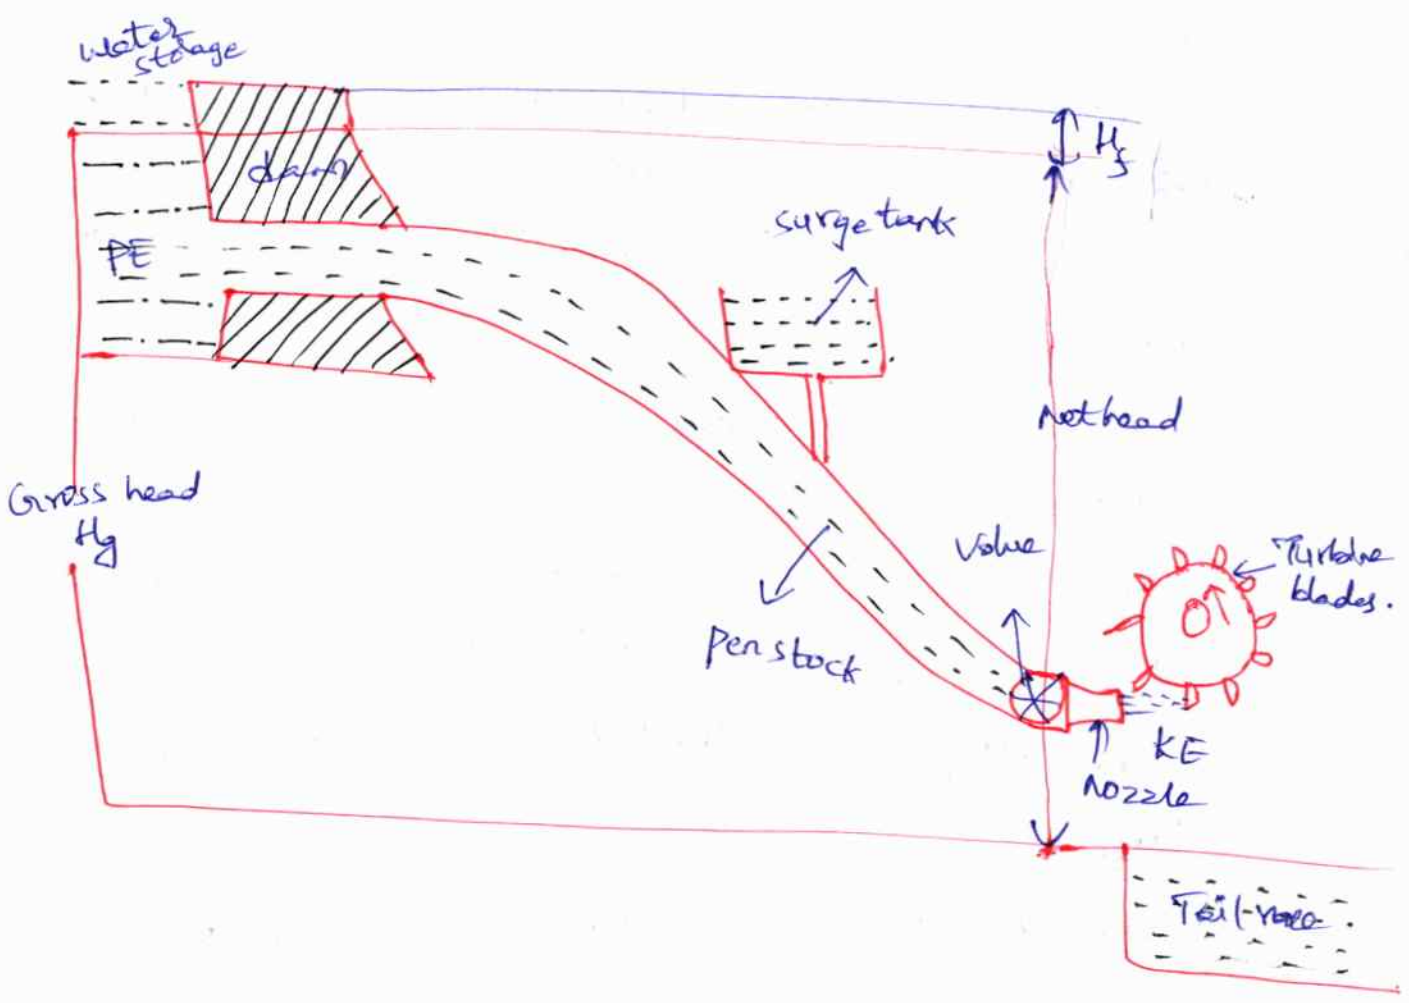 water
storage
dam
Hf
surge tank
PE
Net head
Gross head
Hg
Valve
Turbine
blades.
Penstock
KE
Nozzle
Tail-race